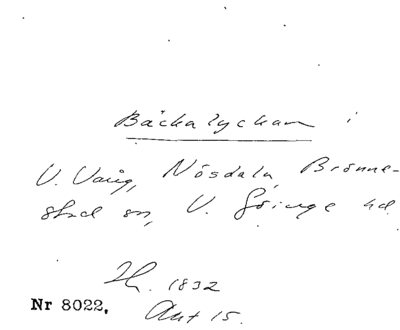 Bäckalyckan i
V. Vång, Nösdala, Brönne-
stad sn, V. Göinge hd
Nr 8022, 1832
Akt 15.